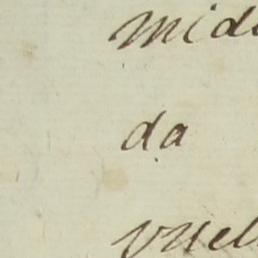 mid
da
vuel